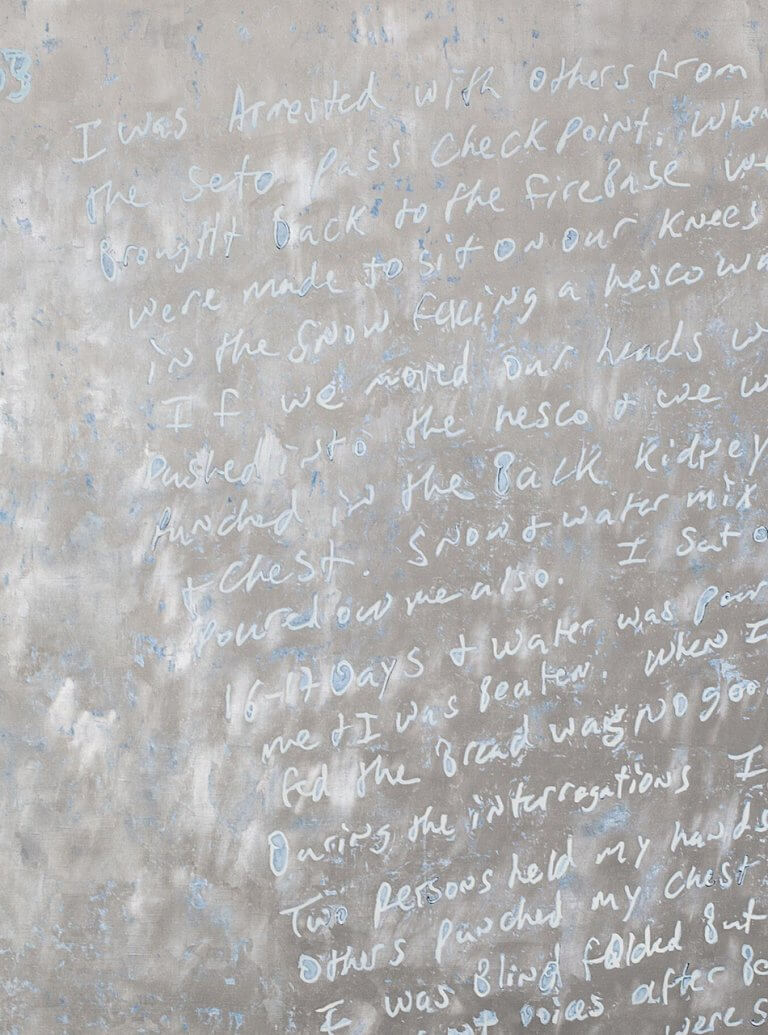 03
I was Arrested with others from
the seto Pass Check Point. When
Brought Back to the fireBase we
were made to sit on our knees
in the snow facing a hesco wa
If we moved our heads w
Pushed into the hesco & we w
Punched in the Back Kidney
+ Chest. Snow & water mix
Poured on me also. I sat o
16-17 Days & water was Pour
me & I was Beaten. When I
fed the Bread was NO goo
During the interrogations I
Two Persons held my hands
Others Punched my chest
I was Blind folded But
voices after Be
were s